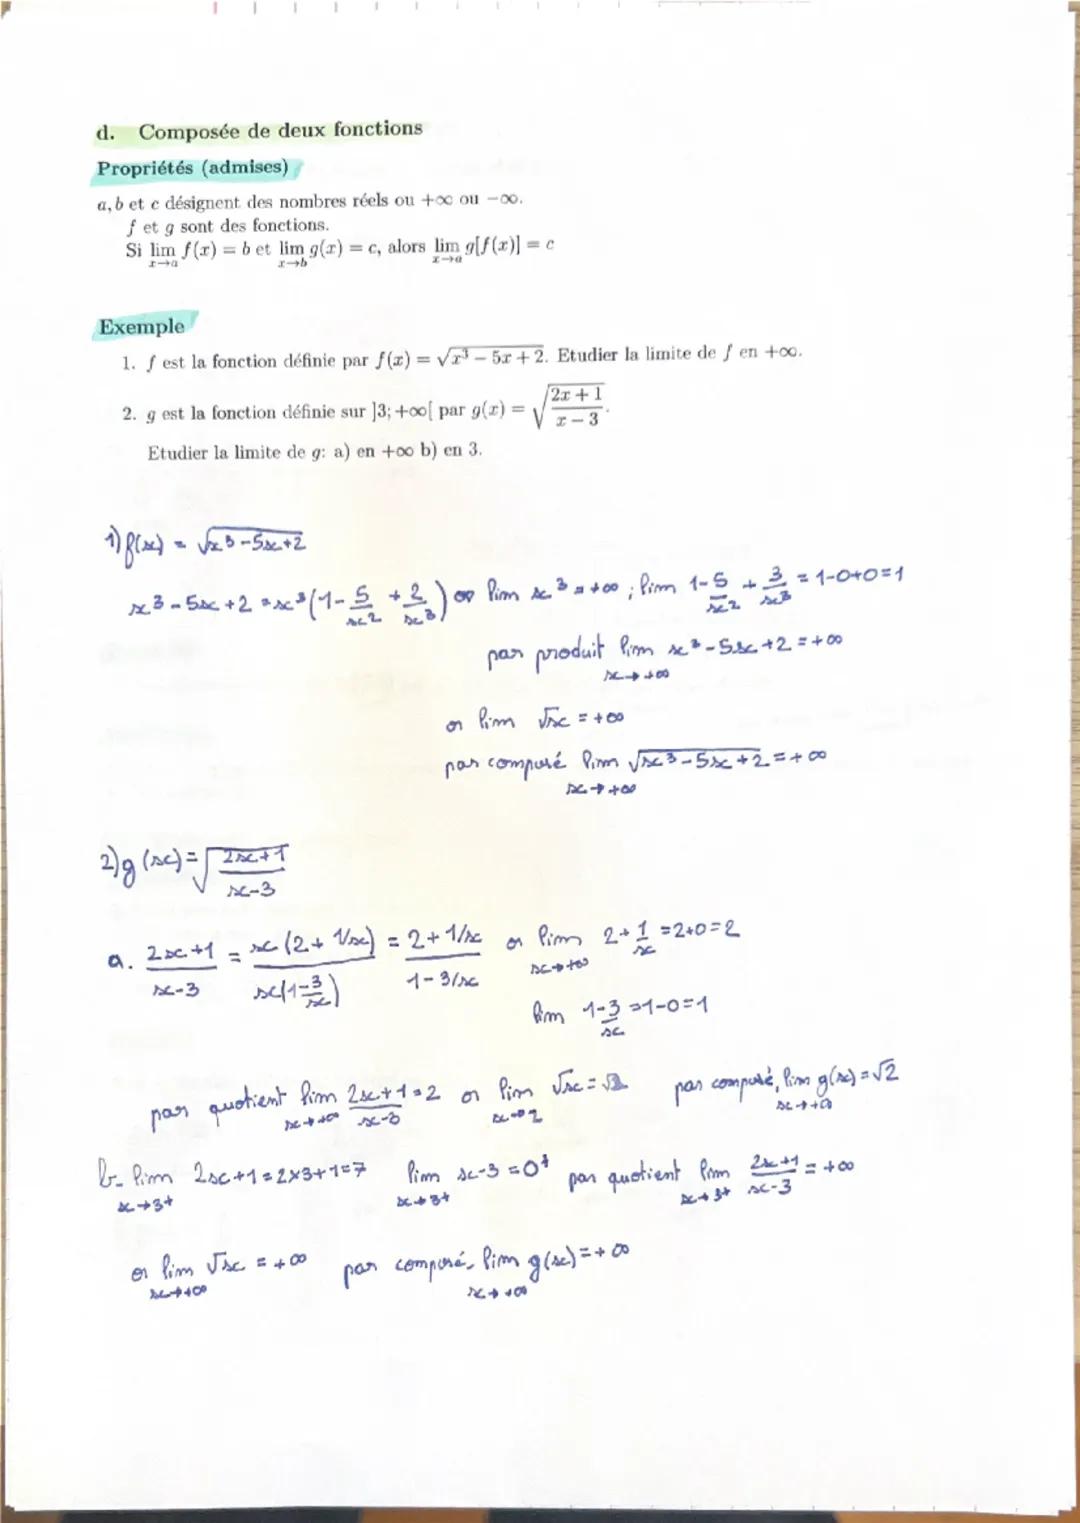 d. Composée de deux fonctions
Propriétés (admises)
a, b et c désignent des nombres réels ou +∞ ou −∞.
f et g sont des fonctions.
Si lim f(x) = b et lim g(x) = c, alors lim g[f(x)] = c
x→a x→b x→a
Exemple
1. f est la fonction définie par f(x) = √(x³ − 5x + 2). Etudier la limite de f en +∞.
2. g est la fonction définie sur ]3; +∞[ par g(x) = √((2x + 1)/(x − 3)).
Etudier la limite de g: a) en +∞ b) en 3.
1) f(x) = √(x³-5x+2)
x³-5x+2 = x³(1-5/x² + 2/x³) or lim x³ = +∞ ; lim 1-5/x² + 3/x³ = 1-0+0=1
par produit lim x³-5x+2 = +∞
x→+∞
or lim √x = +∞
par composé lim √(x³-5x+2) = +∞
x→+∞
2) g(x) = √((2x+1)/(x-3))
a. (2x+1)/(x-3) = x(2+1/x)/x(1-3/x) = (2+1/x)/(1-3/x) or lim 2+1/x = 2+0=2
x→+∞
lim 1-3/x = 1-0=1
par quotient lim (2x+1)/(x-3) = 2 or lim √x = √2 par composé, lim g(x) = √2
x→+∞ x→2 x→+∞
b- lim 2x+1 = 2×3+1=7 lim x-3 = 0⁺ par quotient lim (2x+1)/(x-3) = +∞
x→3+ x→3+ x→3+
or lim √x = +∞ par composé, lim g(x) = +∞
x→+∞ x→+∞